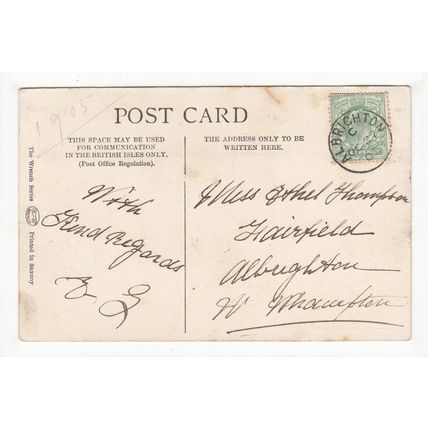 1905
POST CARD
THIS SPACE MAY BE USED
FOR COMMUNICATION
IN THE BRITISH ISLES ONLY.
(Post Office Regulation).
THE ADDRESS ONLY TO BE
WRITTEN HERE.
ALBRIGHTON
The Wrench Series
Printed in Saxony
With
Kind Regards
Miss Ethel Thompson
Fairfield
Albrighton
Nr Whampton